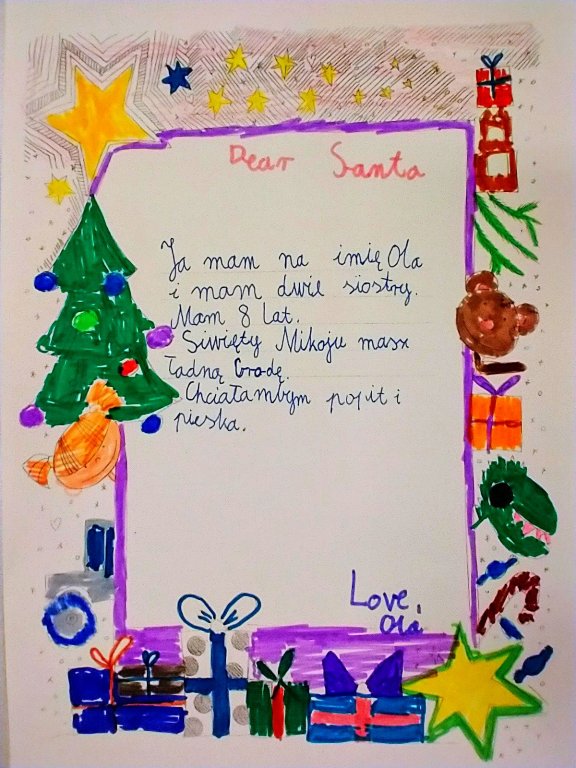 Dear Santa
Ja mam na imię Ola
i mam dwie siostry.
Mam 8 lat.
Siwięty Mikoju masz
ładną Brodę.
Chciałambym popit i
pieska.
Love,
Ola